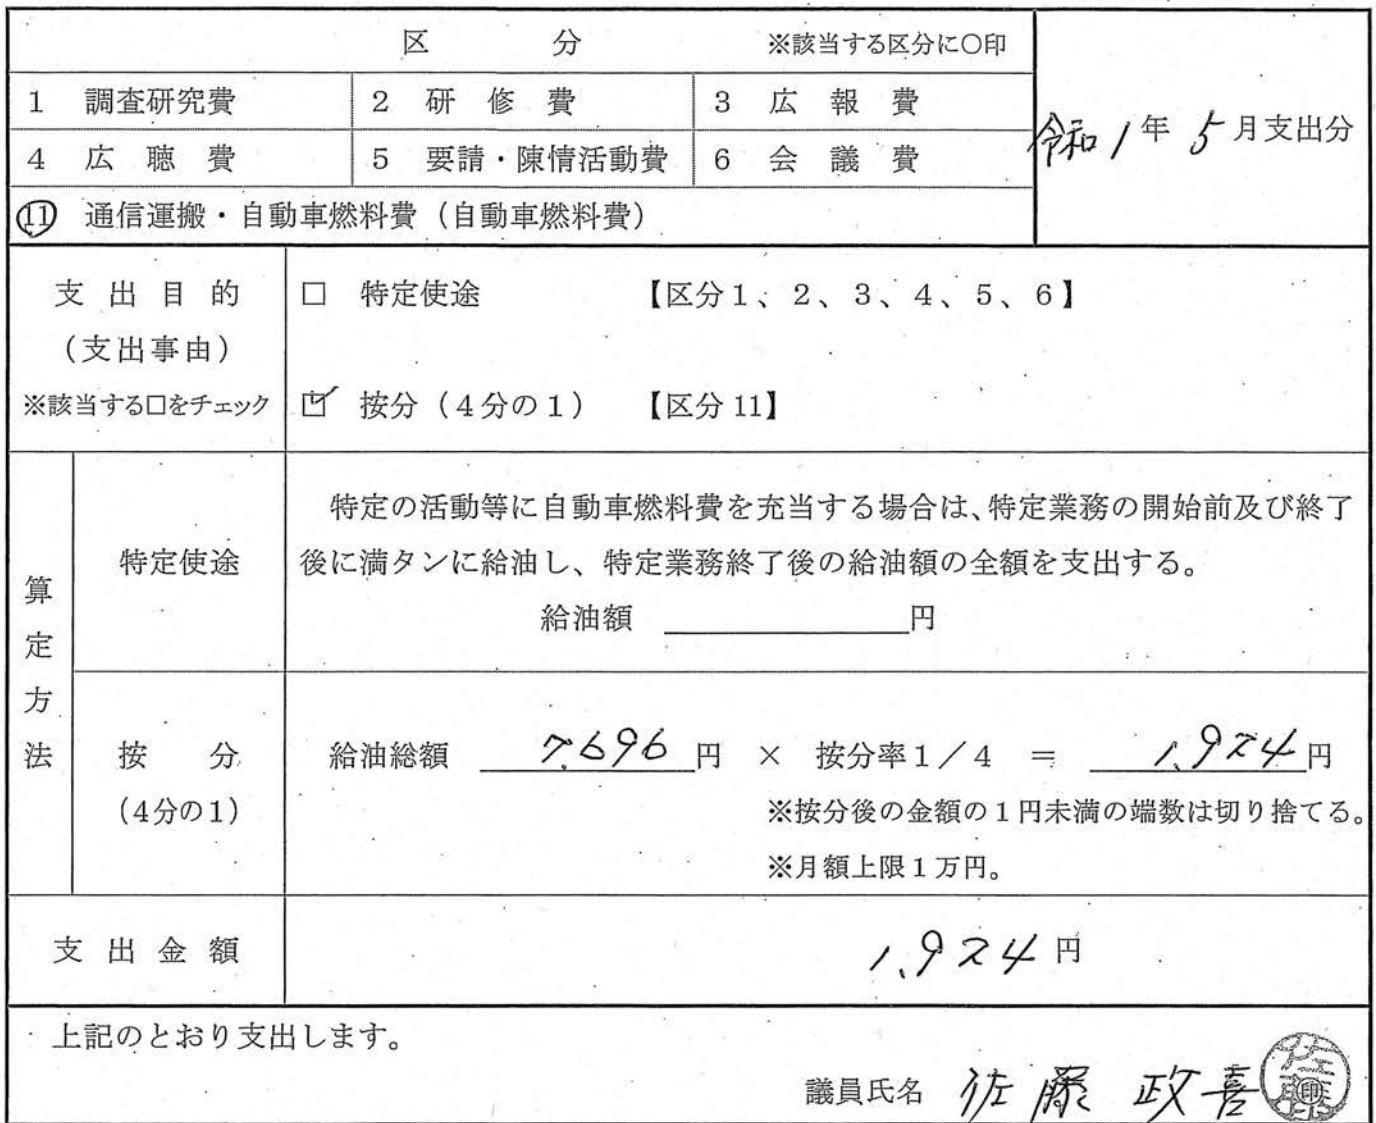 区 分 ※該当する区分に〇印
1 調査研究費 2 研修費 3 広報費
4 広聴費 5 要請・陳情活動費 6 会議費
⑪ 通信運搬・自動車燃料費（自動車燃料費）
令和1年5月支出分
支出目的
（支出事由）
※該当する□をチェック
□ 特定使途 【区分1、2、3、4、5、6】
☑ 按分（4分の1） 【区分11】
算定方法
特定使途
特定の活動等に自動車燃料費を充当する場合は、特定業務の開始前及び終了
後に満タンに給油し、特定業務終了後の給油額の全額を支出する。
給油額 円
按分
（4分の1）
給油総額 7,696円 × 按分率1／4 ＝ 1,924円
※按分後の金額の1円未満の端数は切り捨てる。
※月額上限1万円。
支出金額 1,924円
上記のとおり支出します。
議員氏名 佐藤 政喜 佐藤 印